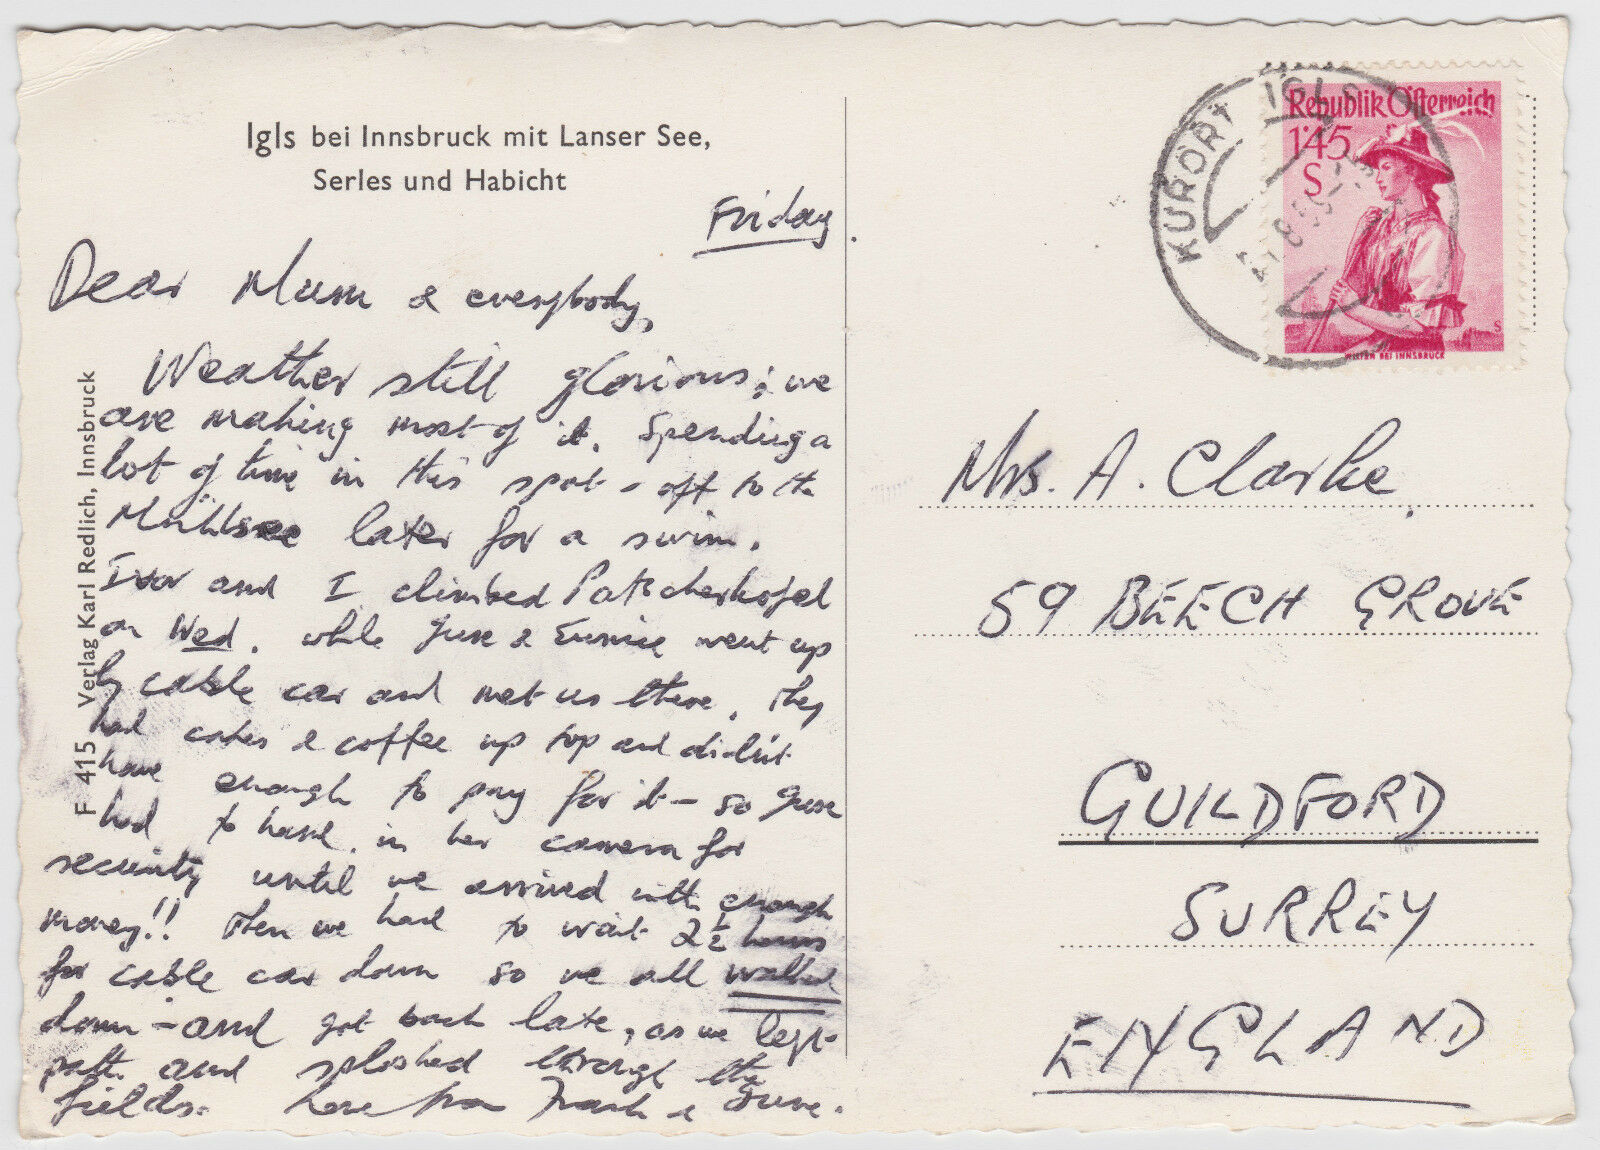 Igls bei Innsbruck mit Lanser See,
Serles und Habicht
Friday.
Dear Mum & everybody,
Weather still glorious; we
are making most of it. Spending a
lot of time in this spot - off to the
Mühlsee later for a swim.
Ivor and I climbed Patscherkofel
on Wed. while June & Eunice went up
by cable car and met us there. They
had cakes & coffee up top and didn't
have enough to pay for it - so June
had to hand in her camera for
security until we arrived with enough
money!! Then we had to wait 2½ hours
for cable car down so we all walked
down - and got back late, as we left
path and sploshed through the
fields. Love from Frank & June.
F 415 Verlag Karl Redlich, Innsbruck
KURORT IGLS
Republik Österreich
1'45
S
WILTEN BEI INNSBRUCK
S
Mrs. A. Clarke.
59 BEECH GROVE
GUILDFORD
SURREY
ENGLAND